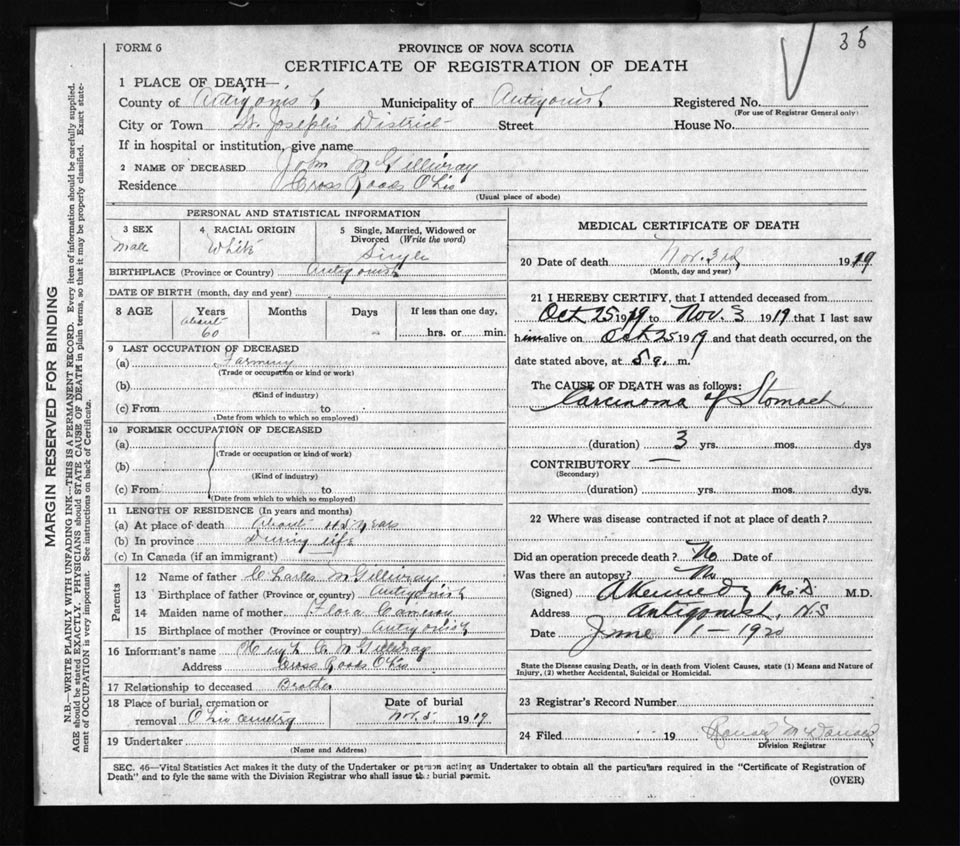 35
FORM 6
PROVINCE OF NOVA SCOTIA
CERTIFICATE OF REGISTRATION OF DEATH
1 PLACE OF DEATH—
County of Antigonish Municipality of Antigonish Registered No.
(For use of Registrar General only)
City or Town St. Joseph's District Street House No.
If in hospital or institution, give name
2 NAME OF DECEASED John McGillivray
Residence Cross Roads Ohio
(Usual place of abode)
PERSONAL AND STATISTICAL INFORMATION
3 SEX Male
4 RACIAL ORIGIN White
5 Single, Married, Widowed or Divorced (Write the word) Single
BIRTHPLACE (Province or Country) Antigonish
DATE OF BIRTH (month, day and year)
8 AGE Years about 60 Months Days If less than one day, hrs. or min.
9 LAST OCCUPATION OF DECEASED
(a) Farming
(Trade or occupation or kind or work)
(b)
(Kind of industry)
(c) From to
(Date from which to which so employed)
10 FORMER OCCUPATION OF DECEASED
(a)
(Trade or occupation or kind of work)
(b)
(Kind of industry)
(c) From to
(Date from which to which so employed)
11 LENGTH OF RESIDENCE (In years and months)
(a) At place of death About years
(b) In province During life
(c) In Canada (if an immigrant)
Parents
12 Name of father Charles McGillivray
13 Birthplace of father (Province or country) Antigonish
14 Maiden name of mother Flora Cameron
15 Birthplace of mother (Province or country) Antigonish
16 Informant's name Hugh C. McGillivray
Address Cross Roads Ohio
17 Relationship to deceased Brother
18 Place of burial, cremation or removal Ohio cemetry Date of burial Nov. 5. 1919
19 Undertaker
(Name and Address)
MEDICAL CERTIFICATE OF DEATH
20 Date of death Nov. 3rd 1919
(Month, day and year)
21 I HEREBY CERTIFY, that I attended deceased from
Oct 25 1919 to Nov. 3 1919 that I last saw
him alive on Oct 25 1919 and that death occurred, on the
date stated above, at 5 a. m.
The CAUSE OF DEATH was as follows:
Carcinoma of Stomach
(duration) 3 yrs. mos. dys
CONTRIBUTORY —
(Secondary)
(duration) yrs. mos. dys.
22 Where was disease contracted if not at place of death?
Did an operation precede death? No Date of
Was there an autopsy? No
(Signed) A Kennedy M.D. M.D.
Address Antigonish, N.S
Date June 1 – 1920
State the Disease causing Death, or in death from Violent Causes, state (1) Means and Nature of
Injury, (2) whether Accidental, Suicidal or Homicidal.
23 Registrar's Record Number
24 Filed 19 Ronald McDonald
Division Registrar
SEC. 46—Vital Statistics Act makes it the duty of the Undertaker or person acting as Undertaker to obtain all the particulars required in the "Certificate of Registration of
Death" and to fyle the same with the Division Registrar who shall issue the burial permit.
(OVER)
MARGIN RESERVED FOR BINDING
N.B.—WRITE PLAINLY WITH UNFADING INK—THIS IS A PERMANENT RECORD. Every item of information should be carefully supplied.
AGE should be stated EXACTLY. PHYSICIANS should STATE CAUSE OF DEATH in plain terms, so that it may be properly classified. Exact state-
ment of OCCUPATION is very important. See instructions on back of Certificate.